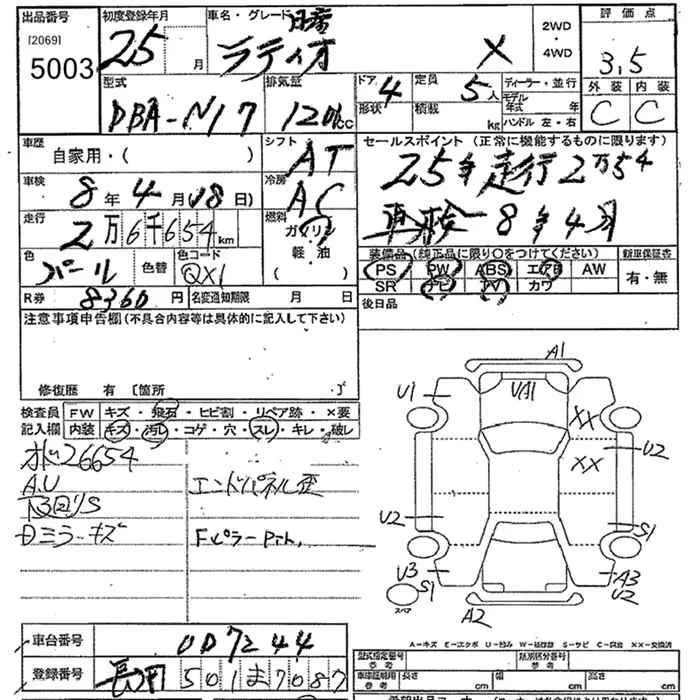 出品番号
[2069]
5003
初度登録年月
25 月
車名・グレード
日産
ラティオ X
2WD
・
4WD
評価点
3.5
外装 内装
C C
型式
DBA-N17
排気量
1200cc
ドア 4
形状
定員 5人
積載 kg
ディーラー・並行
モデル年式 年
ハンドル 左・右
車歴
自家用・( )
シフト
AT
車検
8年4月18日)
冷房
AC
走行
2万6千654km
燃料
ガソリン
軽・油
( )
色
パール
色替
色コード
QX1
R券 8360円
名変通知期限 月 日
セールスポイント (正常に機能するものに限ります)
25年走行2万5千
車検8年4月
装備品(純正品に限り○をつけてください)
PS PW ABS エアB AW
SR ナビ TV カワ
新車保証書
有・無
後日品
注意事項申告欄(不具合内容等は具体的に記入して下さい)
修復歴 有 〔箇所 ・〕
検査員記入欄
FW キズ・飛石・ヒビ割・リペア跡・×要
内装 キズ・汚れ・コゲ・穴・スレ・キレ・破レ
26654
A.U
Dミラーキズ
エンドパネル歪
Fピラー
A1
U1
UA1
XX
XX
U2
U2
S1
U3
S1
A3
U2
A2
スペア
A-キズ E-エクボ U-凹み W-補修跡 S-サビ C-腐食 XX-交換済
車台番号 007244
登録番号 501ま7087
型式指定番号
参考
類別区分番号
参考
車証証明用
参考
長さ cm
幅 cm
高さ cm